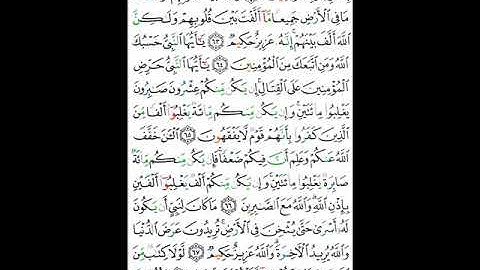 مَا فِي ٱلۡأَرۡضِ جَمِيعٗا مَّآ أَلَّفۡتَ بَيۡنَ قُلُوبِهِمۡ وَلَٰكِنَّ
ٱللَّهَ أَلَّفَ بَيۡنَهُمۡۚ إِنَّهُۥ عَزِيزٌ حَكِيمٞ ٦٣ يَٰٓأَيُّهَا ٱلنَّبِيُّ حَسۡبُكَ
ٱللَّهُ وَمَنِ ٱتَّبَعَكَ مِنَ ٱلۡمُؤۡمِنِينَ ٦٤ يَٰٓأَيُّهَا ٱلنَّبِيُّ حَرِّضِ
ٱلۡمُؤۡمِنِينَ عَلَى ٱلۡقِتَالِۚ إِن يَكُن مِّنكُمۡ عِشۡرُونَ صَٰبِرُونَ
يَغۡلِبُواْ مِاْئَتَيۡنِۚ وَإِن يَكُن مِّنكُم مِّاْئَةٞ يَغۡلِبُوٓاْ أَلۡفٗا مِّنَ
ٱلَّذِينَ كَفَرُواْ بِأَنَّهُمۡ قَوۡمٞ لَّا يَفۡقَهُونَ ٦٥ ٱلۡـَٰٔنَ خَفَّفَ
ٱللَّهُ عَنكُمۡ وَعَلِمَ أَنَّ فِيكُمۡ ضَعۡفٗاۚ فَإِن يَكُن مِّنكُم مِّاْئَةٞ
صَابِرَةٞ يَغۡلِبُواْ مِاْئَتَيۡنِۚ وَإِن يَكُن مِّنكُمۡ أَلۡفٞ يَغۡلِبُوٓاْ أَلۡفَيۡنِ
بِإِذۡنِ ٱللَّهِۗ وَٱللَّهُ مَعَ ٱلصَّٰبِرِينَ ٦٦ مَا كَانَ لِنَبِيٍّ أَن يَكُونَ
لَهُۥٓ أَسۡرَىٰ حَتَّىٰ يُثۡخِنَ فِي ٱلۡأَرۡضِۚ تُرِيدُونَ عَرَضَ ٱلدُّنۡيَا
وَٱللَّهُ يُرِيدُ ٱلۡأٓخِرَةَۗ وَٱللَّهُ عَزِيزٌ حَكِيمٞ ٦٧ لَّوۡلَا كِتَٰبٞ مِّنَ